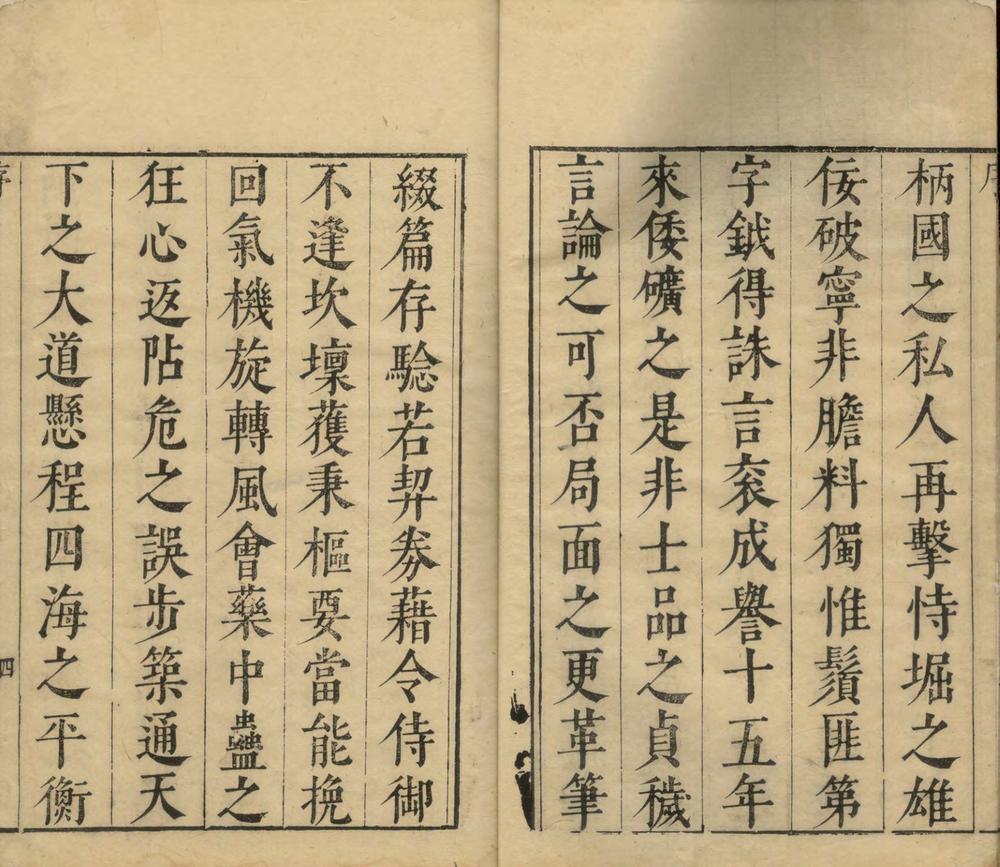 柄國之私人再擊恃堀之雄
佞破寧非膽料獨惟鬚匪第
字鉞得誅言衮成譽十五年
來倭礦之是非士品之貞穢
言論之可否局面之更革筆
綴篇存驗若契劵藉令侍御
不逢坎壈蒦秉樞要當能挽
回氣機旋轉風會藥中蠱之
狂心返阽危之誤步築通天
下之大道懸程四海之平衡
四